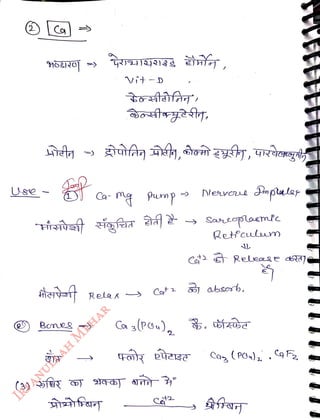 ② Ca ⇒
भण्डारण → पैराथायराइड हॉर्मोन,
Vit-D
केल्सीटोनिन,
केल्सीक्यूटेरीन,
प्रोटीन → ट्रोपोनिन प्रोटीन, कोल्मो ड्यूरीन,
Use - ① Ca-mg pump → Nervous Impulse
मांसपेशी संकुचित होती है → Sarcoplasmic
Reticulum
⇓
Ca⁺² को Release करता
है
माँसपेशी Relax → Ca⁺² को absorb.
② Bones → Ca₃(PO₄)₂ कै. फॉस्फेट
दाँत → फ्लोर एपेटाइट Ca₃(PO₄)₂.CaF₂
(3) रूधिर का थक्का बनने में
प्रोथोम्बिन Ca⁺² → थ्रोम्बिन
MEHAR